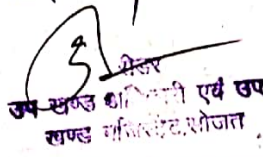 रीडर
उप खण्ड अधिकारी एवं उप
खण्ड मजिस्ट्रेट, सोजत